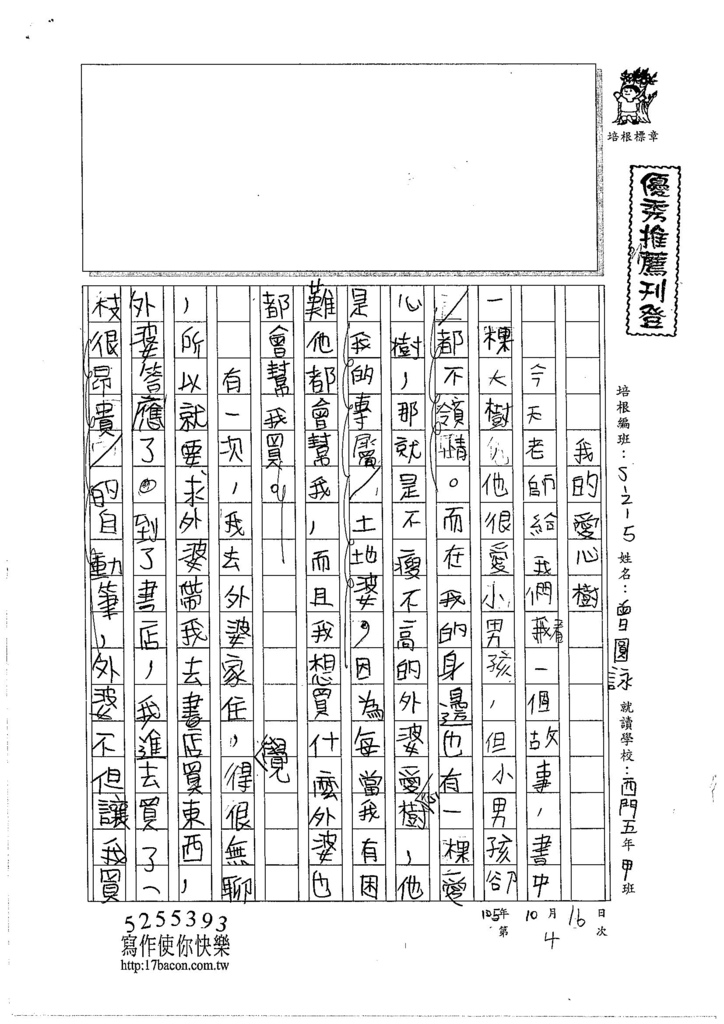 培根標章
優秀推薦刊登
培根編班：5-2-5 姓名：曾圓詠 就讀學校：西門五年甲班
105年10月16日
第4次
我的愛心樹
今天老師給我們看一個故事，書中
一棵大樹他很愛小男孩，但小男孩卻
都不領情。而在我的身邊也有一棵愛
心樹，那就是不瘦不高的外婆愛樹，他
是我的專屬土地婆，因為每當我有困
難他都會幫我，而且我想買什麼外婆也
都會幫我買。
有一次，我去外婆家住，覺得很無聊
，所以就要求外婆帶我去書店買東西，
外婆答應了。到了書店，我進去買了一
枝很昂貴的自動筆，外婆不但讓我買
5255393
寫作使你快樂
http:17bacon.com.tw